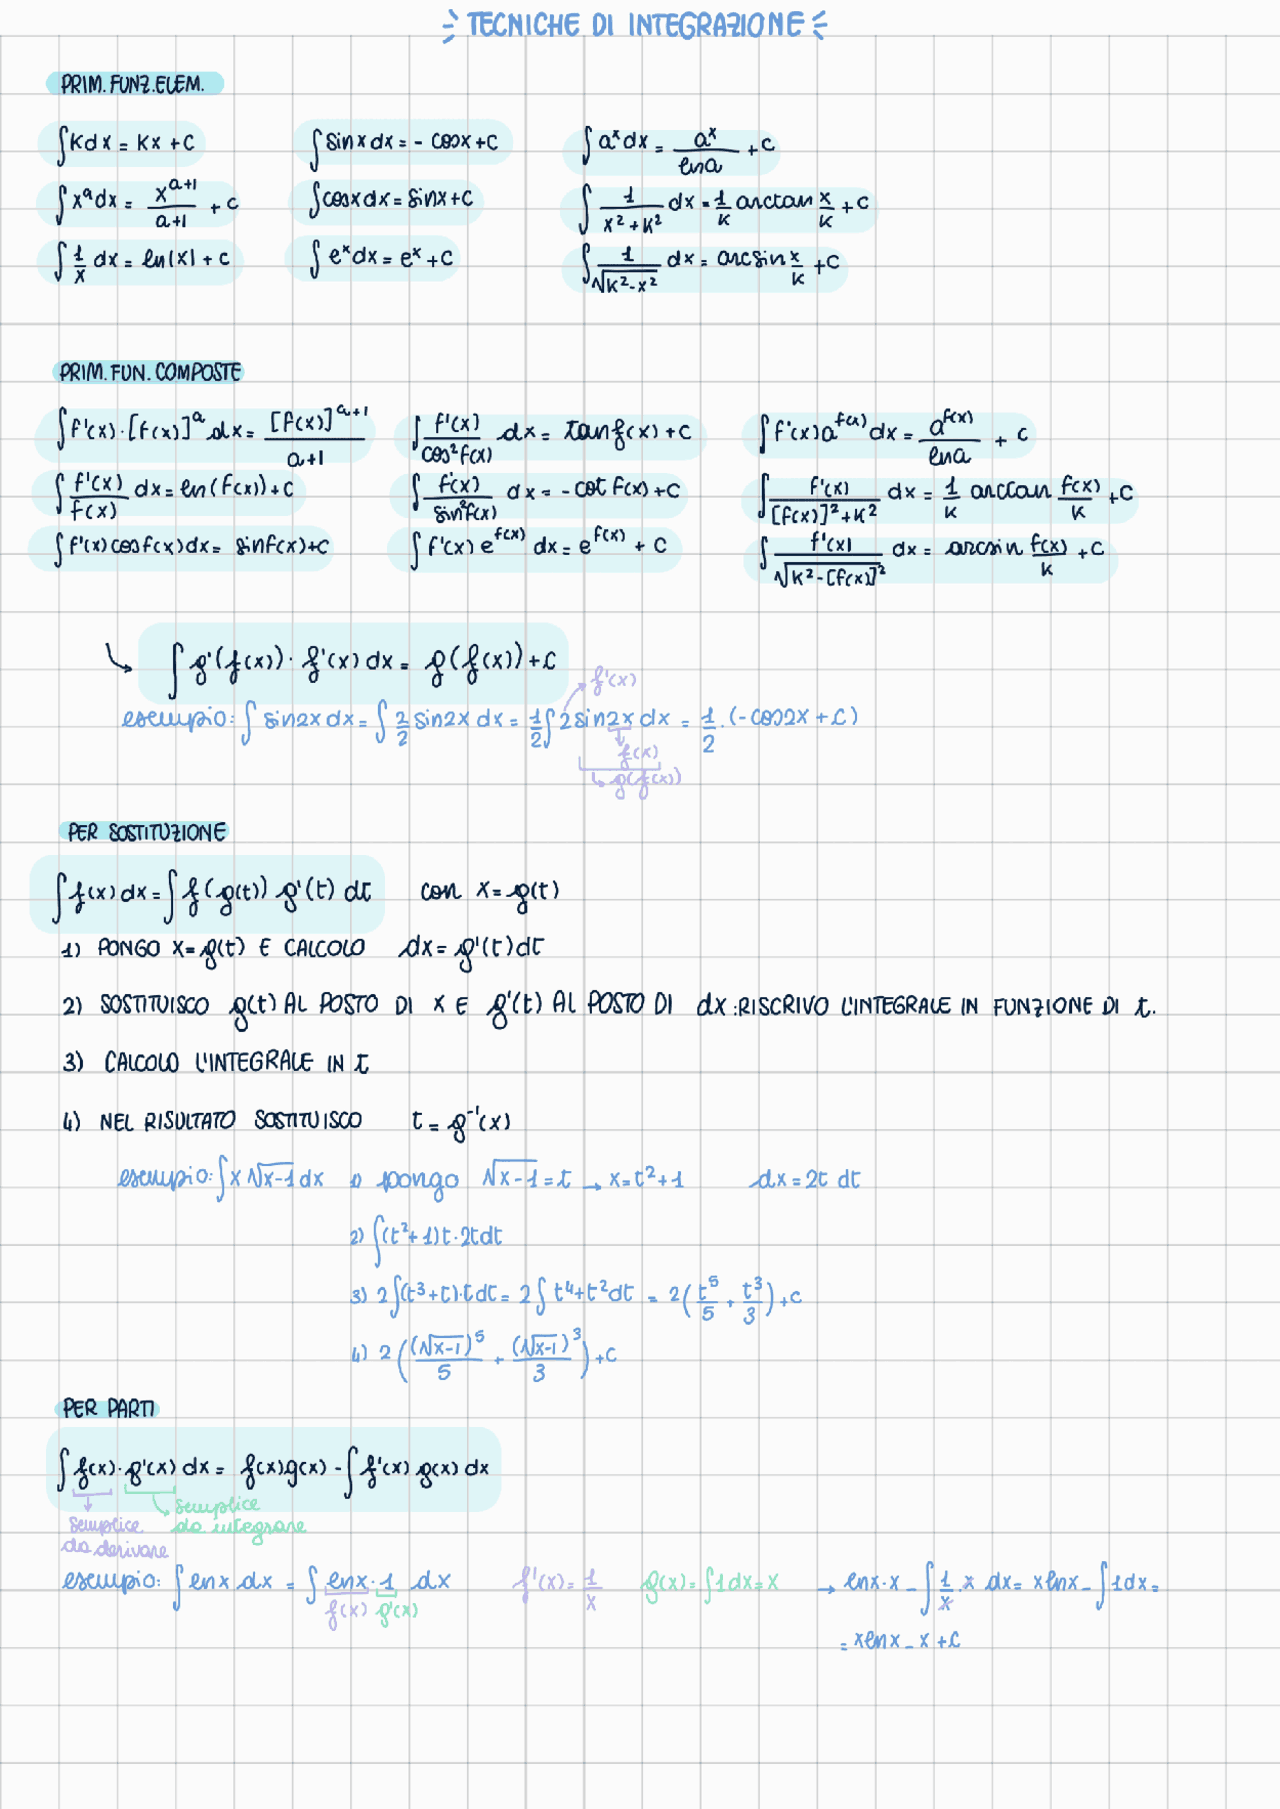 TECNICHE DI INTEGRAZIONE
PRIM. FUNZ. ELEM.
∫ K dx = Kx + C    ∫ sin x dx = - cos x + C    ∫ a^x dx = a^x / ln a + C
∫ x^a dx = x^(a+1) / (a+1) + C    ∫ cos x dx = sin x + C    ∫ 1/(x² + K²) dx = 1/K arctan x/K + C
∫ 1/x dx = ln |x| + C    ∫ e^x dx = e^x + C    ∫ 1/√(K² - x²) dx = arcsin x/K + C
PRIM. FUN. COMPOSTE
∫ f'(x) · [f(x)]^a dx = [f(x)]^(a+1) / (a+1)    ∫ f'(x) / cos² f(x) dx = tan f(x) + C    ∫ f'(x) a^f(x) dx = a^f(x) / ln a + C
∫ f'(x) / f(x) dx = ln (f(x)) + C    ∫ f'(x) / sin² f(x) dx = - cot f(x) + C    ∫ f'(x) / ([f(x)]² + K²) dx = 1/K arctan f(x)/K + C
∫ f'(x) cos f(x) dx = sin f(x) + C    ∫ f'(x) e^f(x) dx = e^f(x) + C    ∫ f'(x) / √(K² - [f(x)]²) dx = arcsin f(x)/K + C
∫ g'(f(x)) · f'(x) dx = g(f(x)) + C
f'(x)
esempio: ∫ sin2x dx = ∫ 2/2 sin2x dx = 1/2 ∫ 2 sin2x dx = 1/2 · (- cos2x + C)
f(x)
g(f(x))
PER SOSTITUZIONE
∫ f(x) dx = ∫ f(g(t)) g'(t) dt    con x = g(t)
1) PONGO x = g(t) E CALCOLO dx = g'(t) dt
2) SOSTITUISCO g(t) AL POSTO DI x E g'(t) AL POSTO DI dx : RISCRIVO L'INTEGRALE IN FUNZIONE DI t.
3) CALCOLO L'INTEGRALE IN t
4) NEL RISULTATO SOSTITUISCO t = g⁻¹(x)
esempio: ∫ x √(x-1) dx    1) pongo √(x-1) = t → x = t² + 1    dx = 2t dt
2) ∫ (t² + 1) t · 2t dt
3) 2 ∫ (t³ + t) · t dt = 2 ∫ t⁴ + t² dt = 2 (t⁵/5 + t³/3) + C
4) 2 ((√(x-1))⁵/5 + (√(x-1))³/3) + C
PER PARTI
∫ f(x) · g'(x) dx = f(x) g(x) - ∫ f'(x) g(x) dx
semplice da derivare
semplice da integrare
esempio: ∫ ln x dx = ∫ ln x · 1 dx    f'(x) = 1/x    g(x) = ∫ 1 dx = x    → ln x · x - ∫ 1/x · x dx = x ln x - ∫ 1 dx =
f(x) g'(x)
= x ln x - x + C